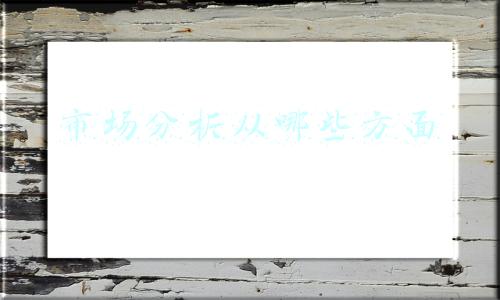 市场分析从哪些方面